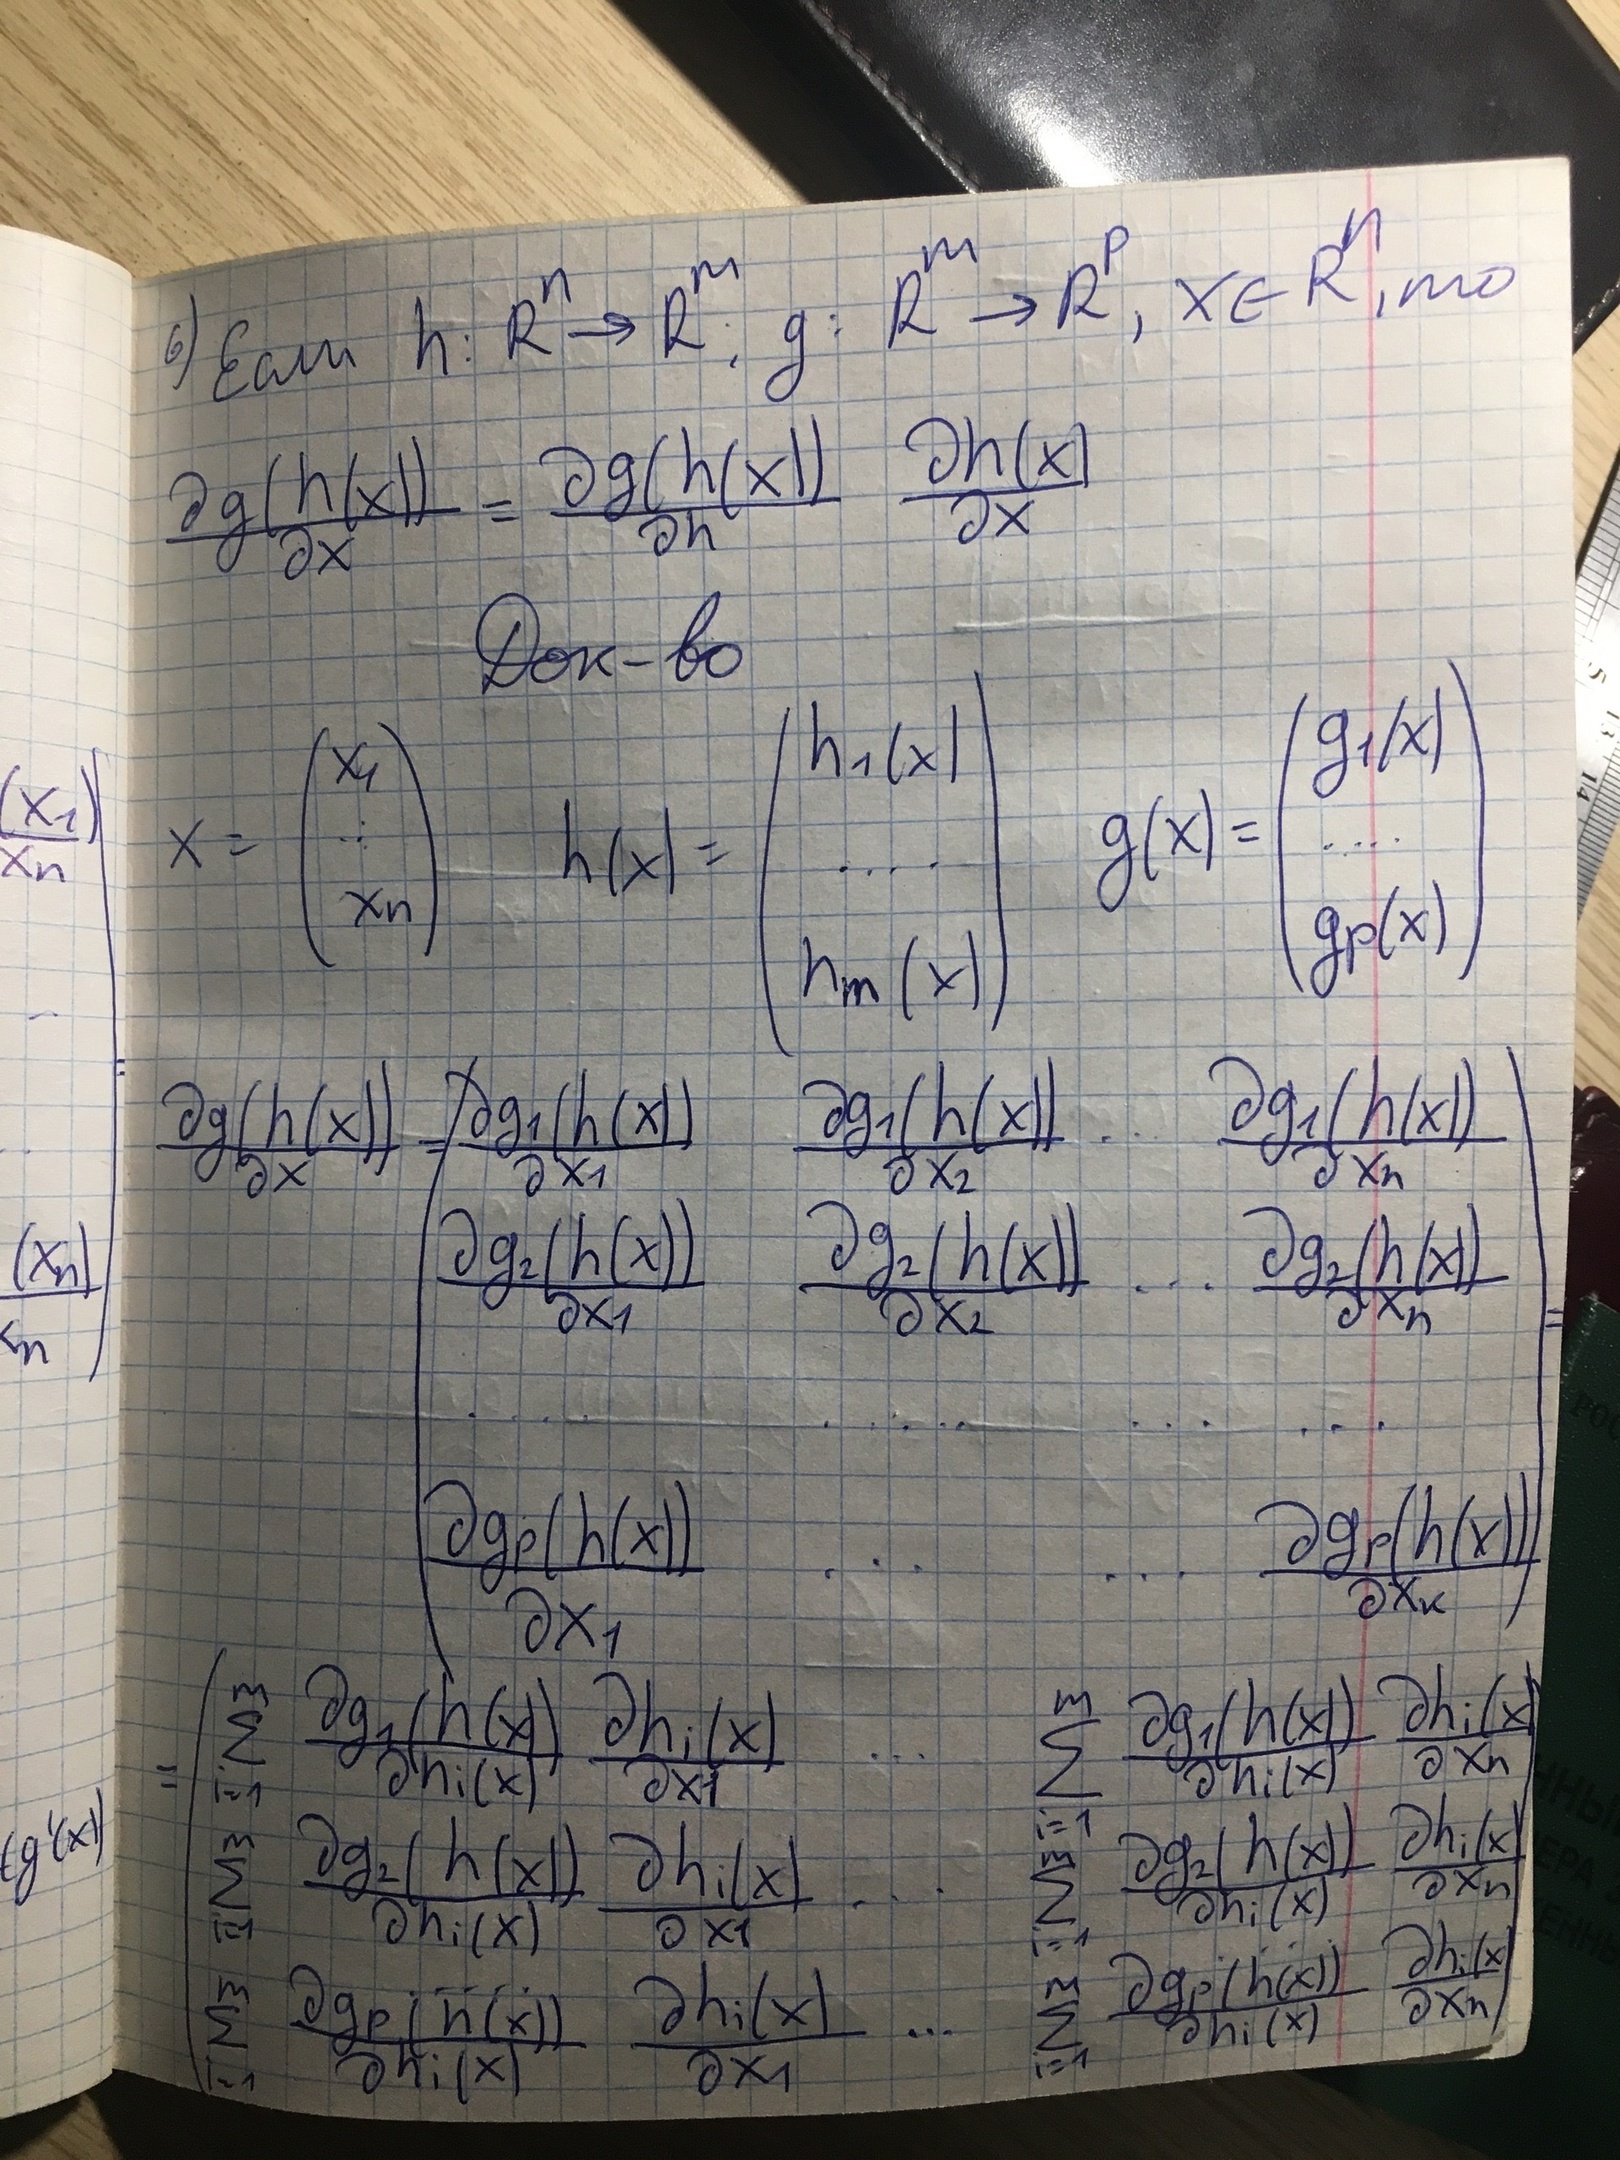 б) Если h: R^n → R^m; g: R^m → R^p, x ∈ R^n, то
∂g(h(x))/∂x = ∂g(h(x))/∂h ∂h(x)/∂x
Док-во
x = (x₁ ... xn) h(x) = (h₁(x) .... hm(x)) g(x) = (g₁(x) .... gp(x))
∂g(h(x))/∂x = (∂g₁(h(x))/∂x₁ ∂g₁(h(x))/∂x₂ ... ∂g₁(h(x))/∂xn
∂g₂(h(x))/∂x₁ ∂g₂(h(x))/∂x₂ ... ∂g₂(h(x))/∂xn
.... .... ... ...
∂gp(h(x))/∂x₁ ... ... ∂gp(h(x))/∂xn) =
= (∑_{i=1}^m ∂g₁(h(x))/∂hi(x) ∂hi(x)/∂x₁ ... ∑_{i=1}^m ∂g₁(h(x))/∂hi(x) ∂hi(x)/∂xn
∑_{i=1}^m ∂g₂(h(x))/∂hi(x) ∂hi(x)/∂x₁ .... ∑_{i=1}^m ∂g₂(h(x))/∂hi(x) ∂hi(x)/∂xn
.... ....
∑_{i=1}^m ∂gp(h(x))/∂hi(x) ∂hi(x)/∂x₁ ... ∑_{i=1}^m ∂gp(h(x))/∂hi(x) ∂hi(x)/∂xn)
(x₁)
xn
=
(xn)
xn
g'(x)
15
13
14